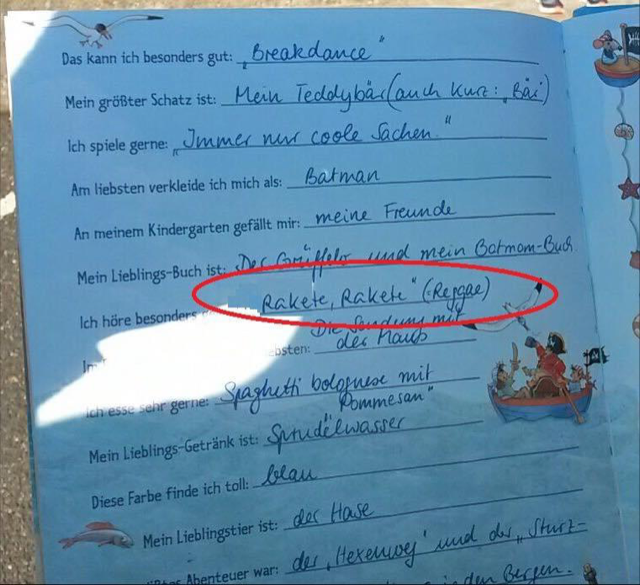 Das kann ich besonders gut: „Breakdance“
Mein größter Schatz ist: Mein Teddybär (auch kurz: „Bäi)
Ich spiele gerne: „Immer nur coole Sachen.“
Am liebsten verkleide ich mich als: Batman
An meinem Kindergarten gefällt mir: meine Freunde
Mein Lieblings-Buch ist: Der Grüffelo und mein Batmam-Buch
Ich höre besonders Rakete, Rakete“ (Reggae)
Die Sendung mit
ebsten: der Maus
Ich esse sehr gerne: Spaghetti bolognese mit
Pommesan“
Mein Lieblings-Getränk ist: Sprudelwasser
Diese Farbe finde ich toll: blau
Mein Lieblingstier ist: der Hase
Abenteuer war: der „Hexenweg“ und der „Sturz-
in den Bergen.